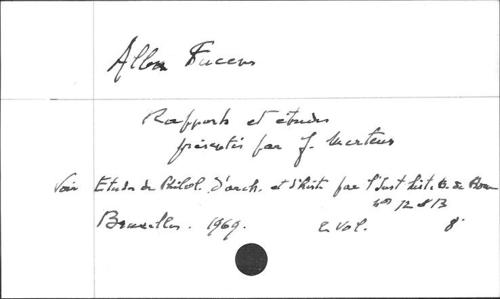 Alba Fucens
Rapports et études
présentés par J. Mertens
Voir Etudes de Philol. d'arch. et d'hist. par l'Inst. hist. B. de Rome
nos 12 & 13
Bruxelles. 1969. 2 vol. 8°